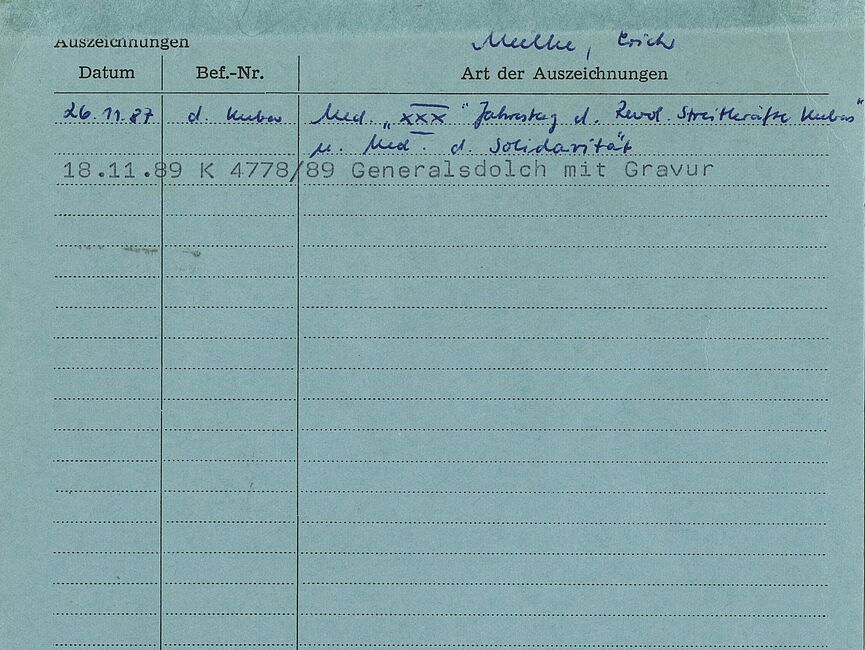 Auszeichnungen Mielke, Erich
Datum Bef.-Nr. Art der Auszeichnungen
26.11.87 d. Kubas Med. „XXX" Jahrestag d. Revol. Streitkräfte Kubas"
u. Med. d. Solidarität
18.11.89 K 4778/89 Generalsdolch mit Gravur